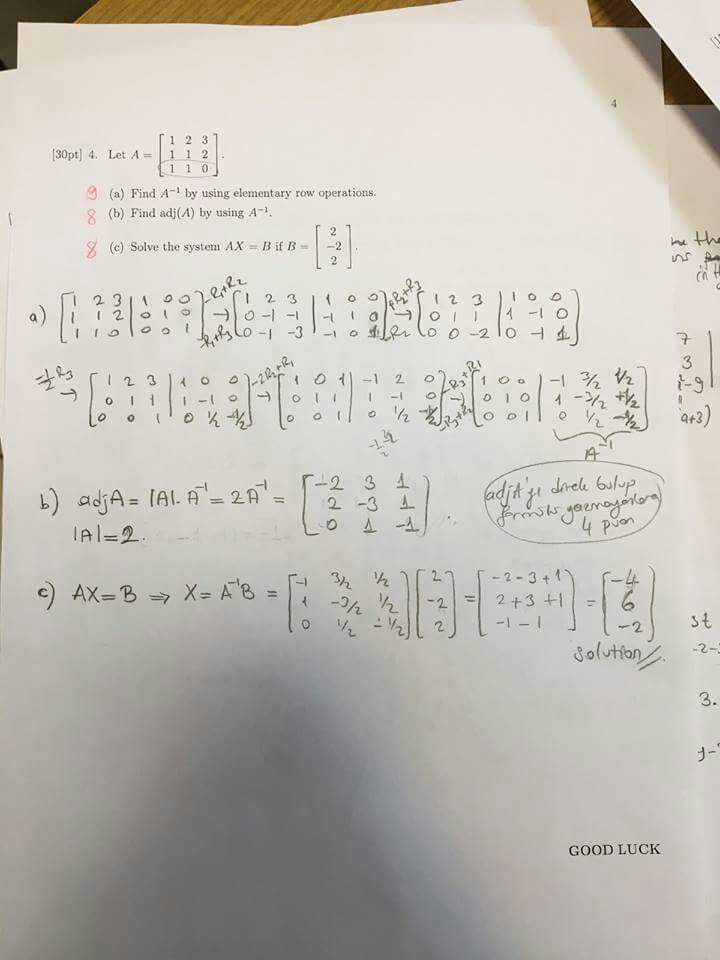 4
[30pt] 4. Let A = [1 2 3; 1 1 2; 1 1 0].
9 (a) Find A⁻¹ by using elementary row operations.
8 (b) Find adj(A) by using A⁻¹.
8 (c) Solve the system AX = B if B = [2; −2; 2].
a) [1 2 3 | 1 0 0; 1 1 2 | 0 1 0; 1 1 0 | 0 0 1] -R1+R2 -R1+R3 → [1 2 3 | 1 0 0; 0 -1 -1 | -1 1 0; 0 -1 -3 | -1 0 1] -R2+R3 -R2 → [1 2 3 | 1 0 0; 0 1 1 | 1 -1 0; 0 0 -2 | 0 -1 1]
-1/2 R3 → [1 2 3 | 1 0 0; 0 1 1 | 1 -1 0; 0 0 1 | 0 1/2 -1/2] -2R2+R1 → [1 0 1 | -1 2 0; 0 1 1 | 1 -1 0; 0 0 1 | 0 1/2 -1/2] -R3+R1 -R3+R2 → [1 0 0 | -1 3/2 1/2; 0 1 0 | 1 -3/2 +1/2; 0 0 1 | 0 1/2 -1/2]
A⁻¹
b) adjA = |A|. A⁻¹ = 2A⁻¹ = [-2 3 1; 2 -3 1; 0 1 -1]
|A|=2.
adjA'yı direk bulup
formülü yazmayanlara
4 puan
c) AX=B ⇒ X= A⁻¹B = [-1 3/2 1/2; 1 -3/2 1/2; 0 1/2 -1/2] [2; -2; 2] = [-2-3+1; 2+3+1; -1-1] = [-4; 6; -2]
solution
GOOD LUCK
7
3
-9
a+3)
st
-2-
3.
y-